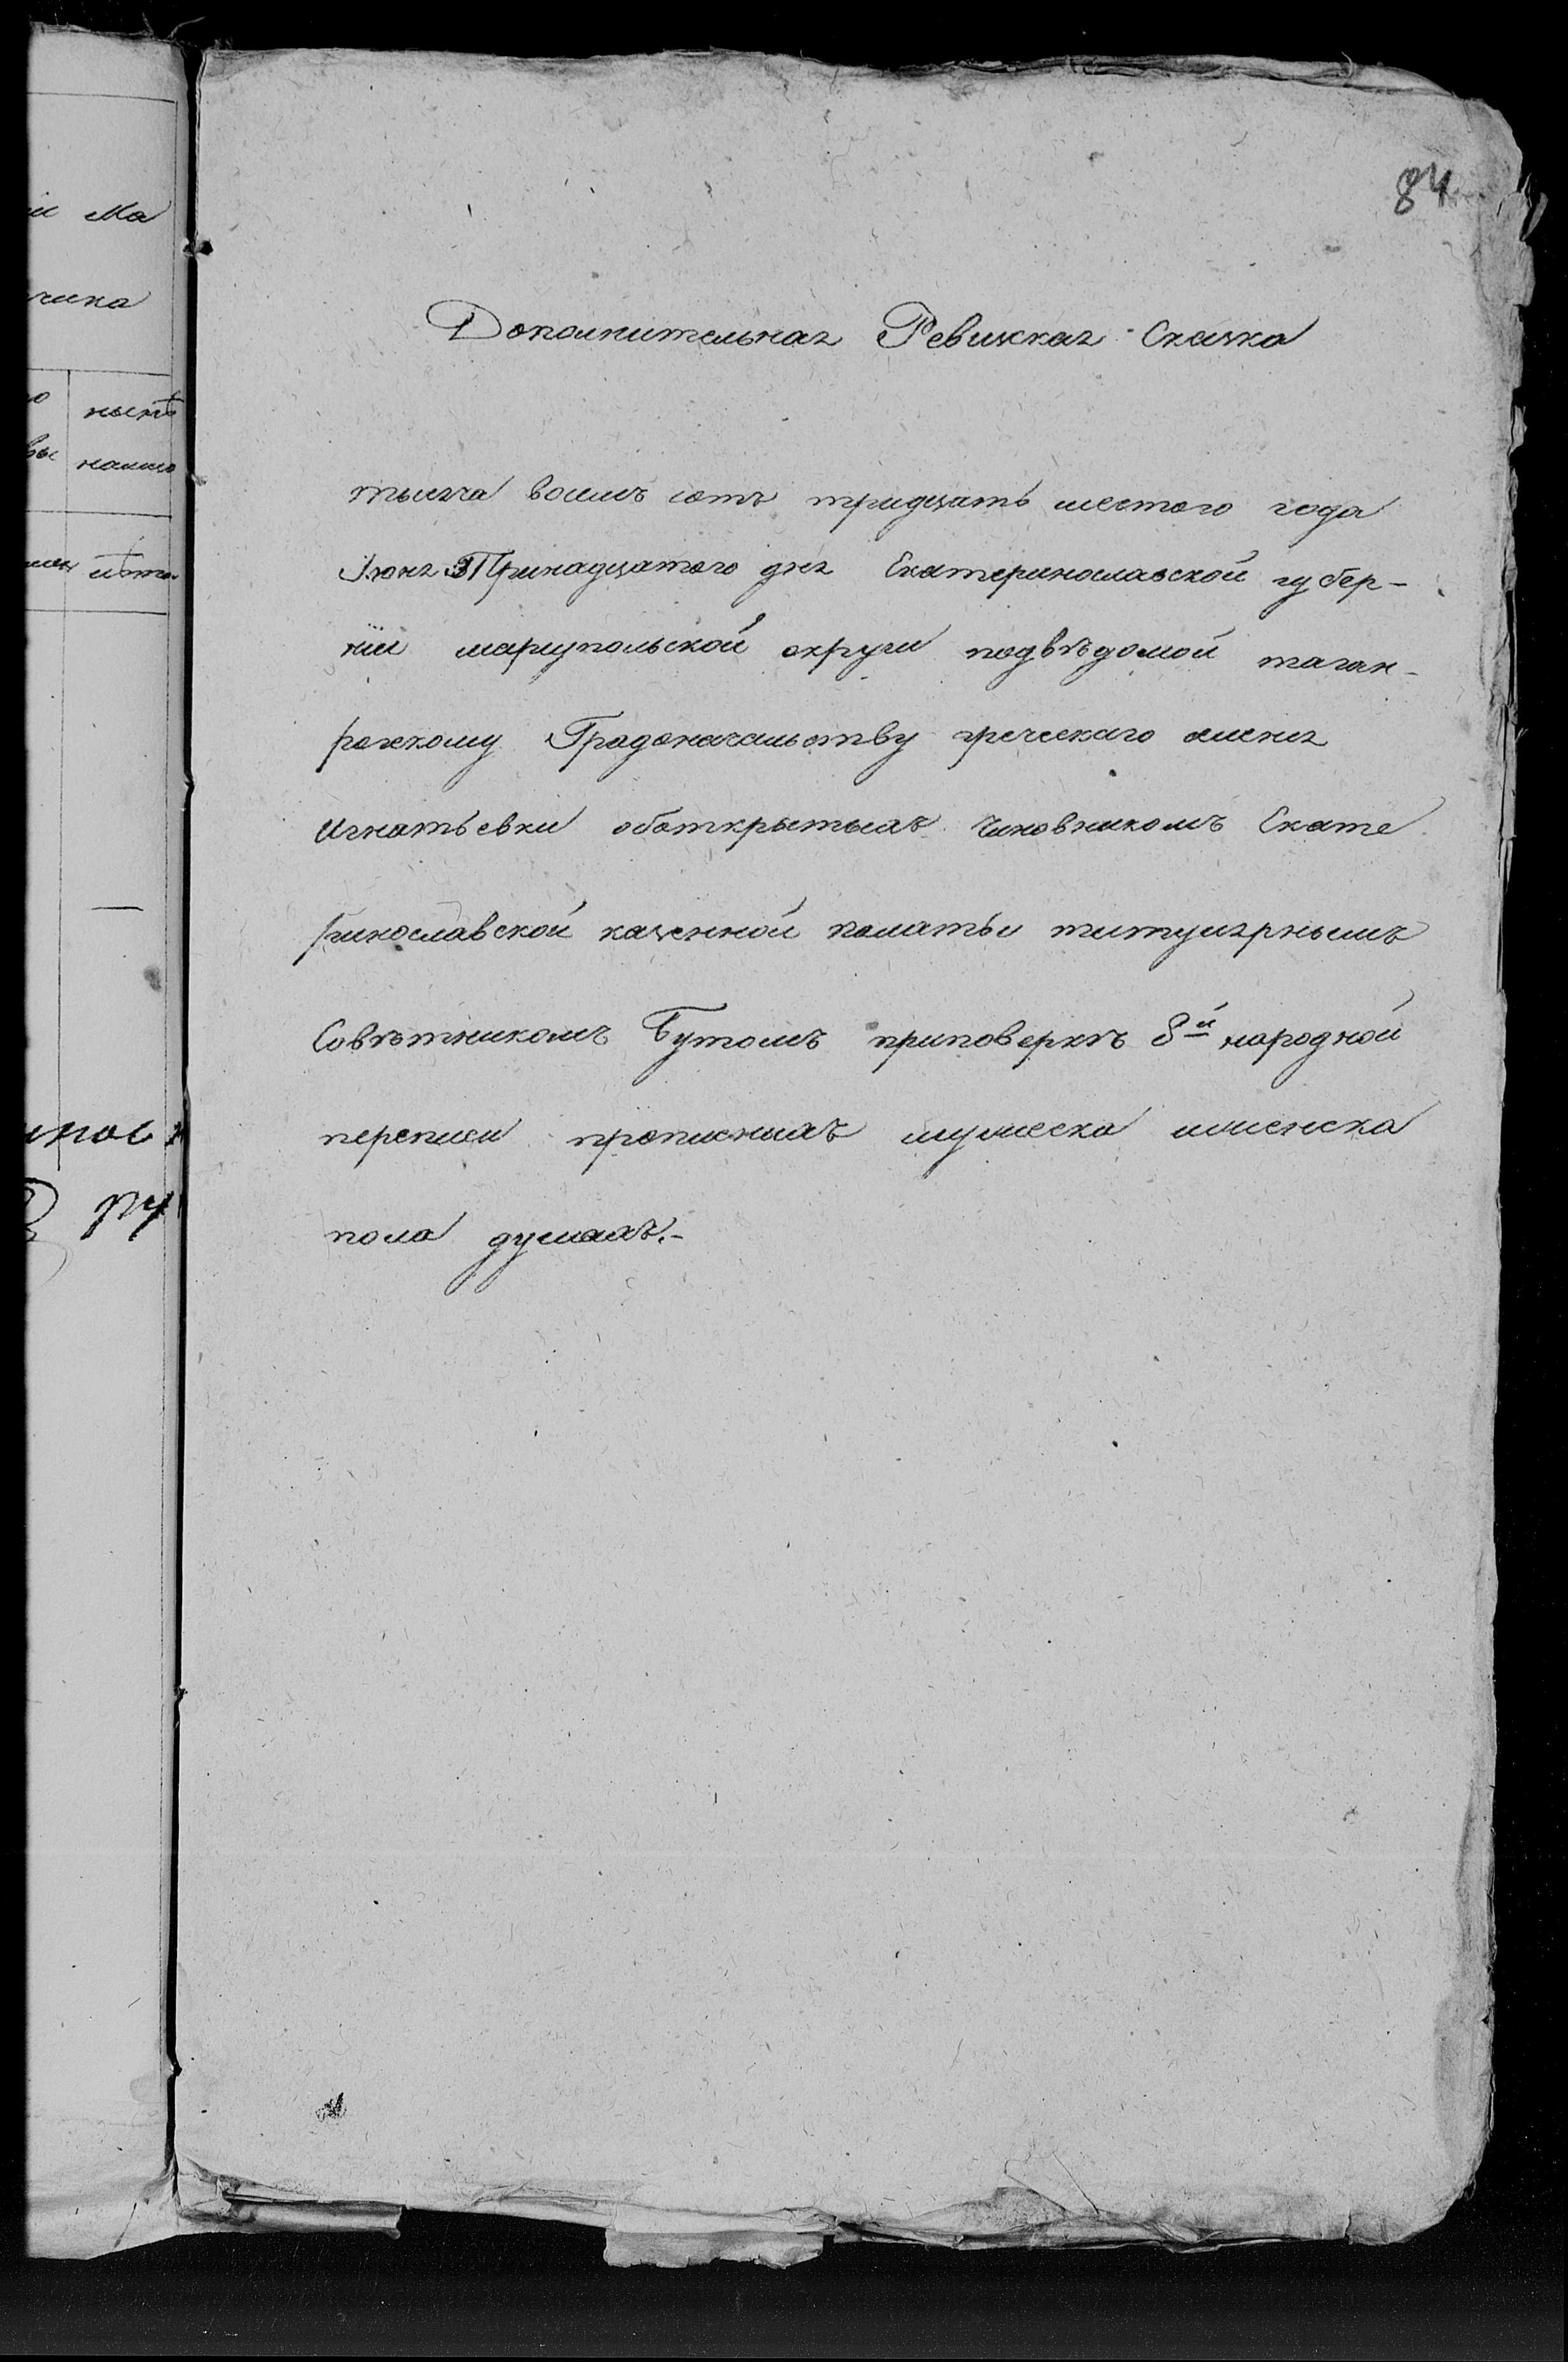 84
Дополнительная Ревизская Сказка
тысяча восемъ сотъ тридцать шестого года
Іюня Тринадцатого дня Екатеринославской губер-
ніи маріупольской округи подвѣдомой таган-
рожскому Градоначальству греческаго селенія
Игнатьевки оботкрытыхъ Чиновникомъ Екате
ринославской казенной палаты титулярнымъ
Совѣтникомъ Бутомъ приповеркѣ 8й народной
переписи прописныхъ мужеска иженска
пола душахъ.-
ма
чика
нынѣ
налицо
лѣта